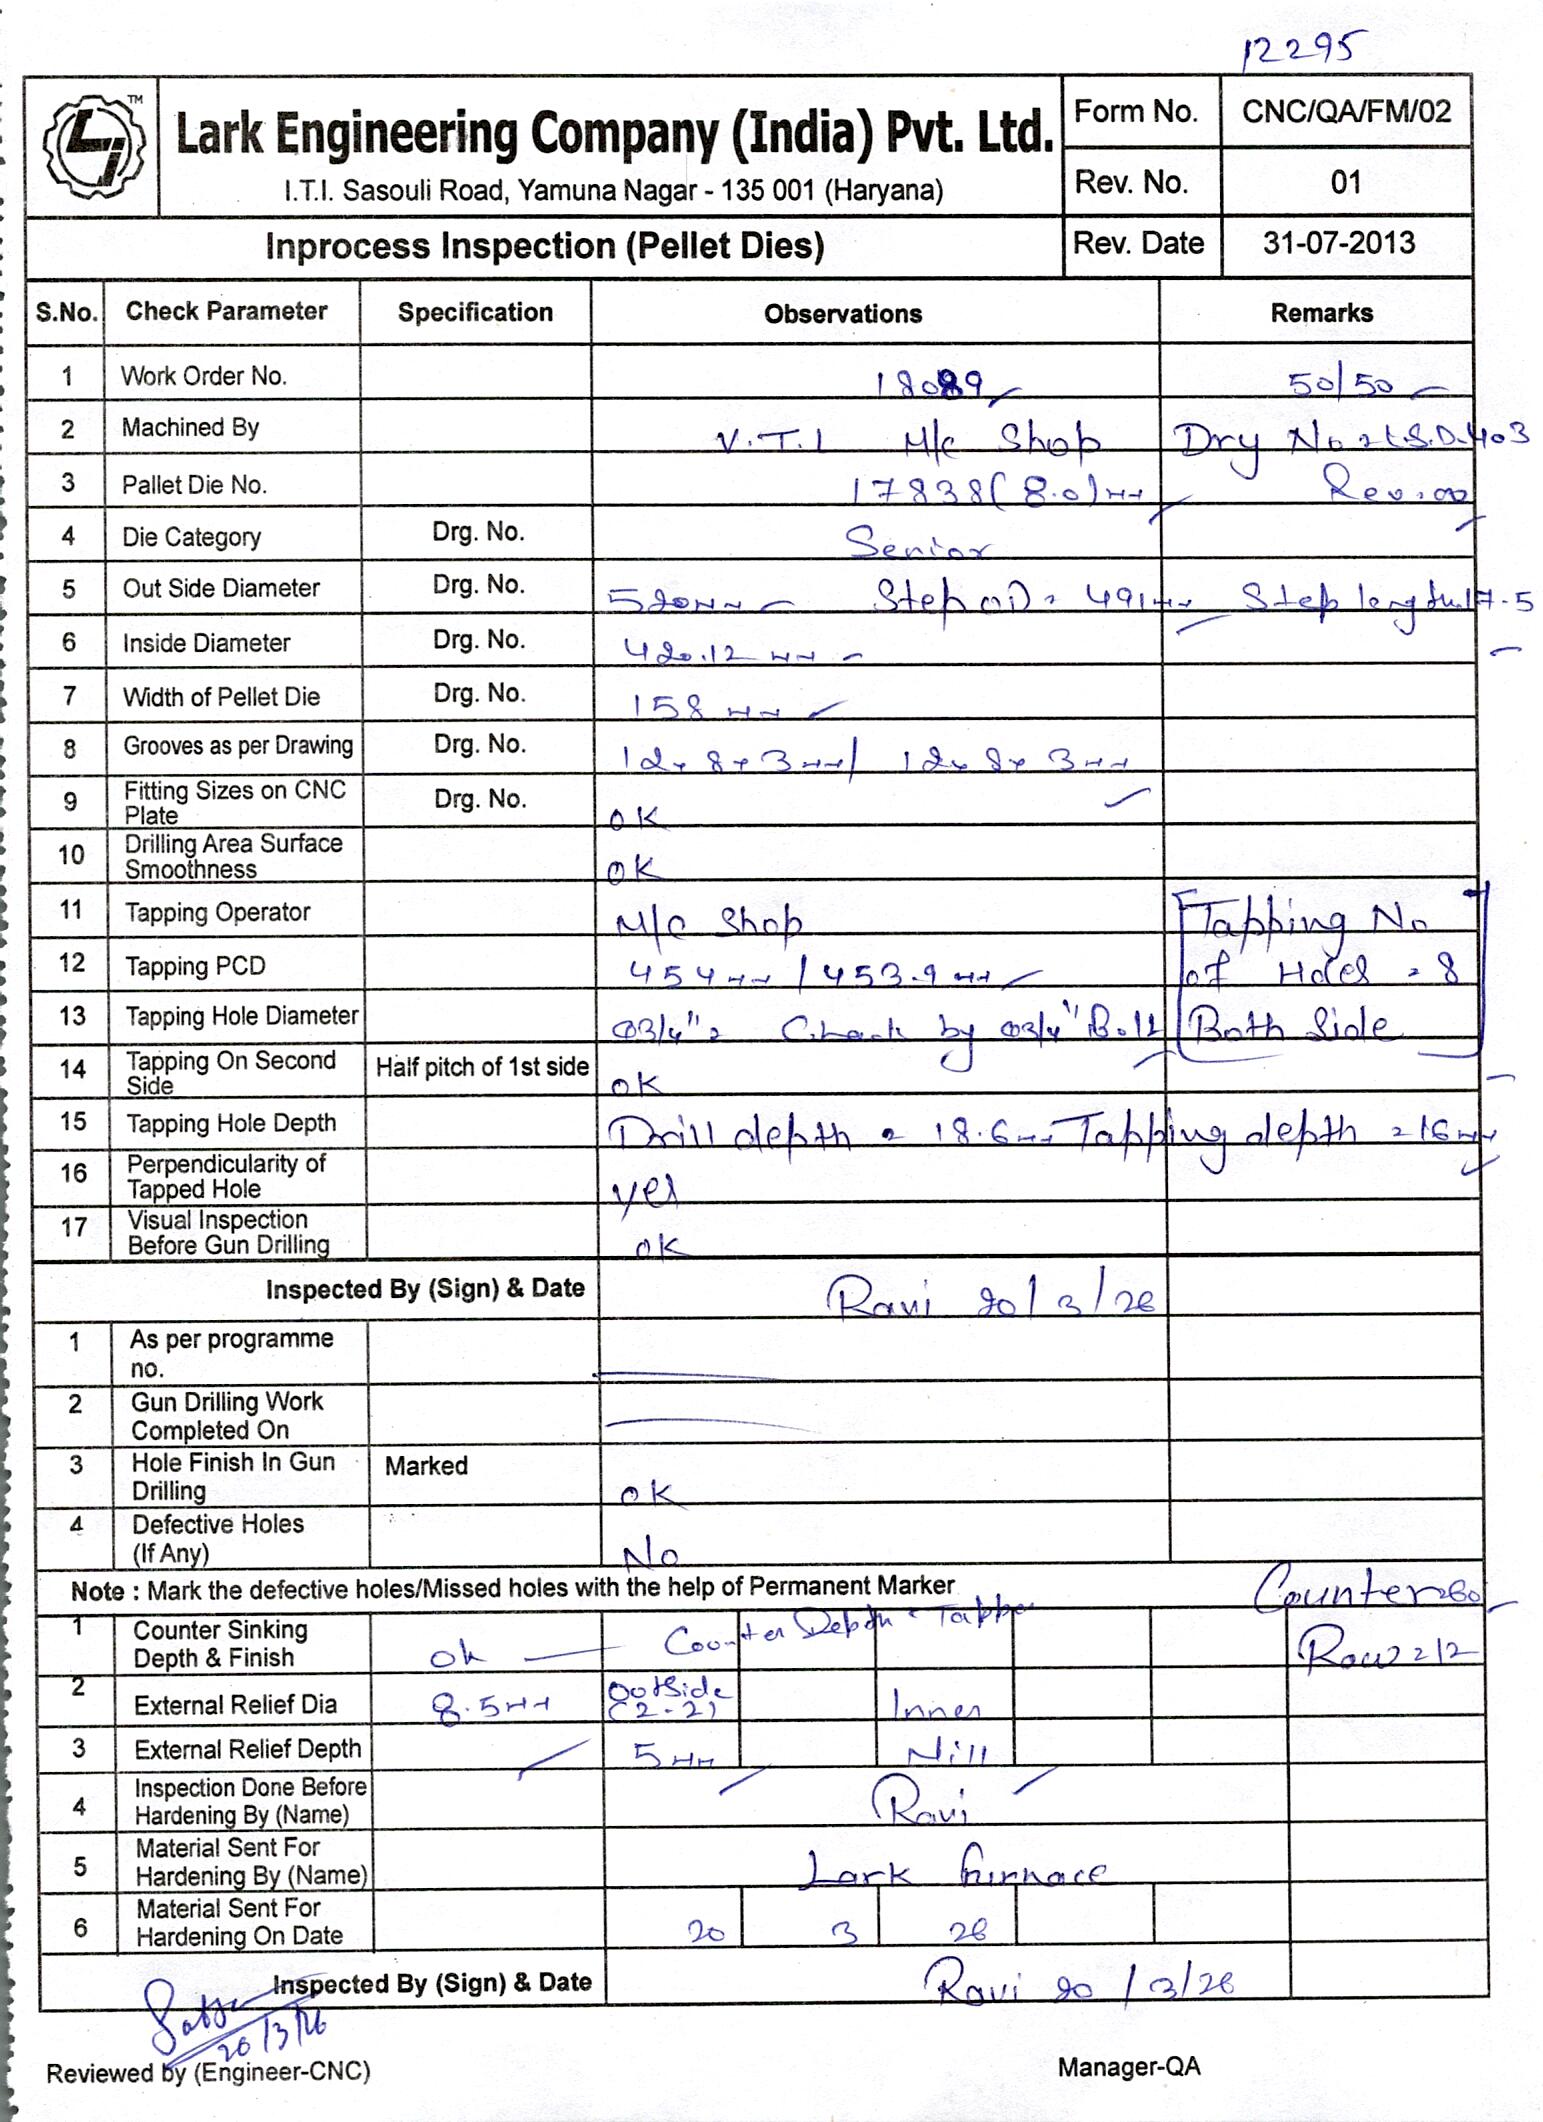 12295
TM
Lark Engineering Company (India) Pvt. Ltd.
I.T.I. Sasouli Road, Yamuna Nagar - 135 001 (Haryana)
Form No. CNC/QA/FM/02
Rev. No. 01
Inprocess Inspection (Pellet Dies) Rev. Date 31-07-2013
S.No. Check Parameter Specification Observations Remarks
1 Work Order No. 18089 50/50
2 Machined By V.T.L M/c Shop Drg No
3 Pallet Die No. 17838(8.0)mm Rev.00
4 Die Category Drg. No. Senior
5 Out Side Diameter Drg. No. 520mm Step OD = 491mm Step length 17.5
6 Inside Diameter Drg. No. 420.12 mm
7 Width of Pellet Die Drg. No. 158 mm
8 Grooves as per Drawing Drg. No. 12x8x3mm/ 12x8x3mm
9 Fitting Sizes on CNC Plate Drg. No. OK
10 Drilling Area Surface Smoothness OK
11 Tapping Operator M/c Shop Tapping No
12 Tapping PCD 454mm / 453.9mm of Holes = 8
13 Tapping Hole Diameter 3/4" = Check by 3/4" Bolt Both Side
14 Tapping On Second Side Half pitch of 1st side OK
15 Tapping Hole Depth Drill depth = 18.6mm Tapping depth = 16mm
16 Perpendicularity of Tapped Hole yes
17 Visual Inspection Before Gun Drilling OK
Inspected By (Sign) & Date Ravi 20/3/26
1 As per programme no.
2 Gun Drilling Work Completed On
3 Hole Finish In Gun Drilling Marked OK
4 Defective Holes (If Any) No
Note : Mark the defective holes/Missed holes with the help of Permanent Marker Counter
1 Counter Sinking Depth & Finish ok Counter Depth Row = 12
2 External Relief Dia 8.5mm Outside (2-2) Inner
3 External Relief Depth 5mm Nill
4 Inspection Done Before Hardening By (Name) Ravi
5 Material Sent For Hardening By (Name) Lark furnace
6 Material Sent For Hardening On Date 20 3 26
Inspected By (Sign) & Date Ravi 20/3/26
20/3/26
Reviewed by (Engineer-CNC) Manager-QA